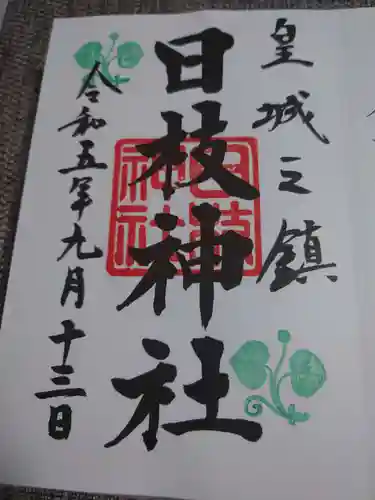 皇城之鎮
日枝神社
令和五年九月十三日
日枝神社